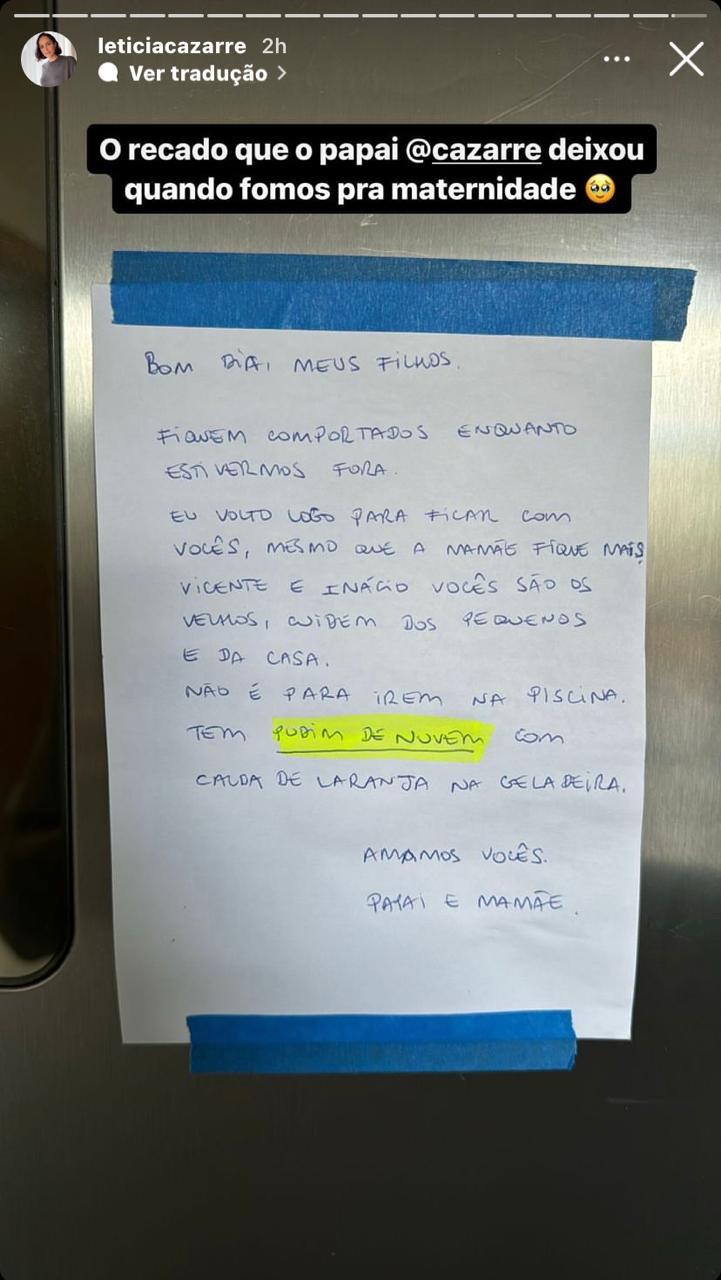 leticiacazarre 2h
Ver tradução
O recado que o papai @cazarre deixou
quando fomos pra maternidade 🥹
BOM DIA, MEUS FILHOS.
FIQUEM COMPORTADOS ENQUANTO
ESTIVERMOS FORA.
EU VOLTO LOGO PARA FICAR COM
VOCÊS, MESMO QUE A MAMÃE FIQUE MAIS
VICENTE E INÁCIO VOCÊS SÃO OS
VELHOS, CUIDEM DOS PEQUENOS
E DA CASA.
NÃO É PARA IREM NA PISCINA.
TEM PUDIM DE NUVEM COM
CALDA DE LARANJA NA GELADEIRA.
AMAMOS VOCÊS.
PAPAI E MAMÃE.